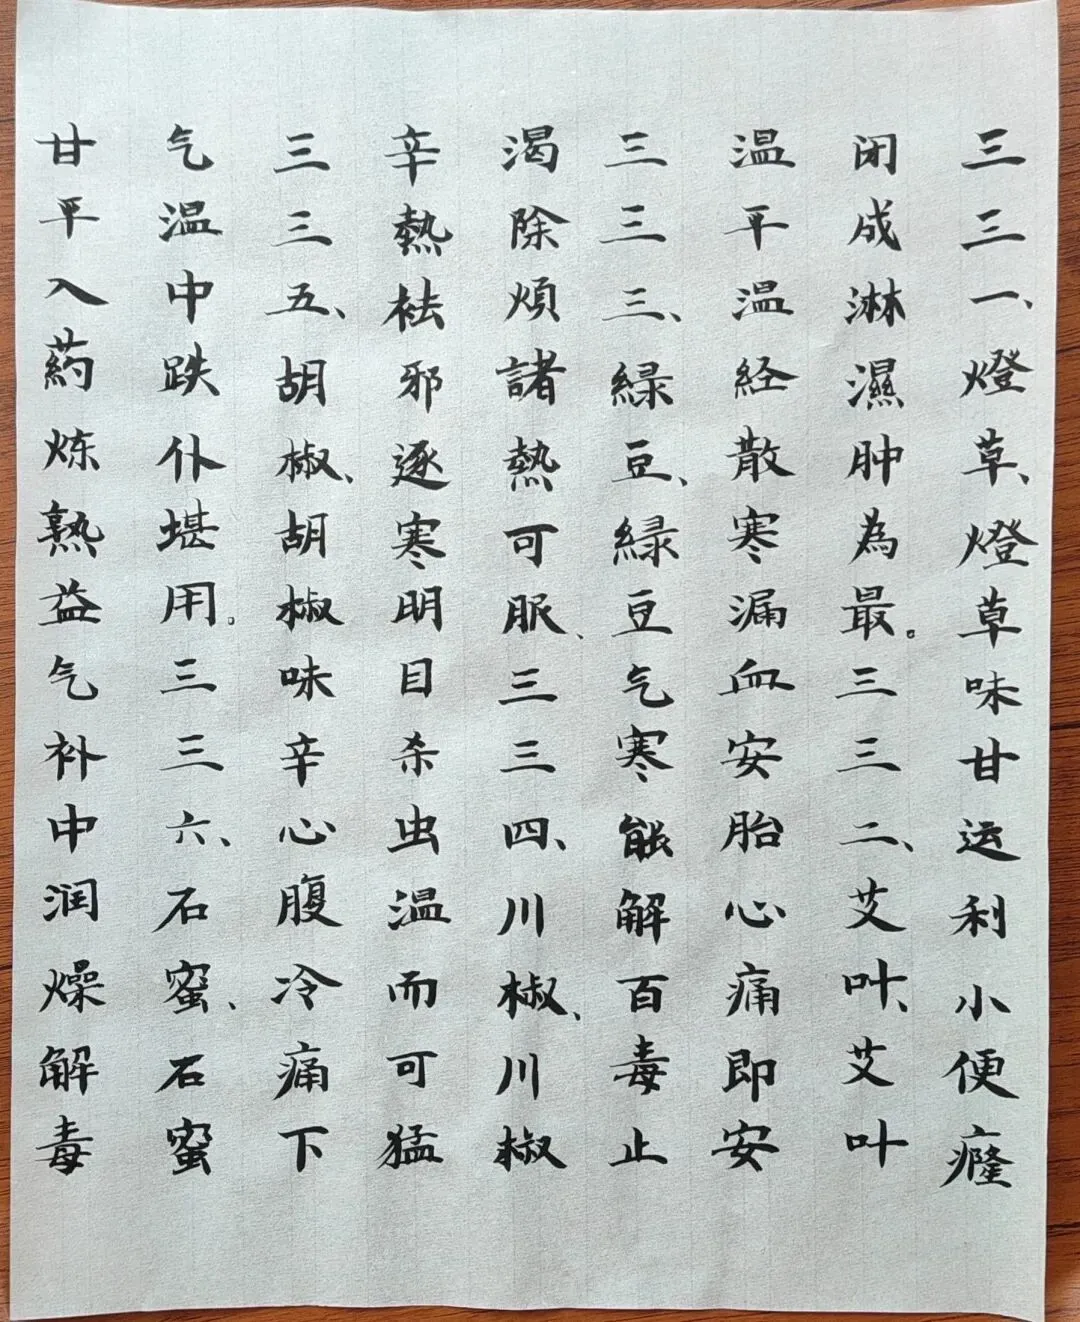 三三一、燈草、燈草味甘运利小便癃
闭成淋濕肿為最。三三二、艾叶、艾叶
温平温经散寒漏血安胎心痛即安
三三三、緑豆、緑豆气寒能解百毒止
渴除煩諸熱可服、三三四、川椒、川椒
辛熱祛邪逐寒明目杀虫温而可猛
三三五、胡椒、胡椒味辛心腹冷痛下
气温中跌仆堪用。三三六、石蜜、石蜜
甘平入药炼熟益气补中润燥解毒